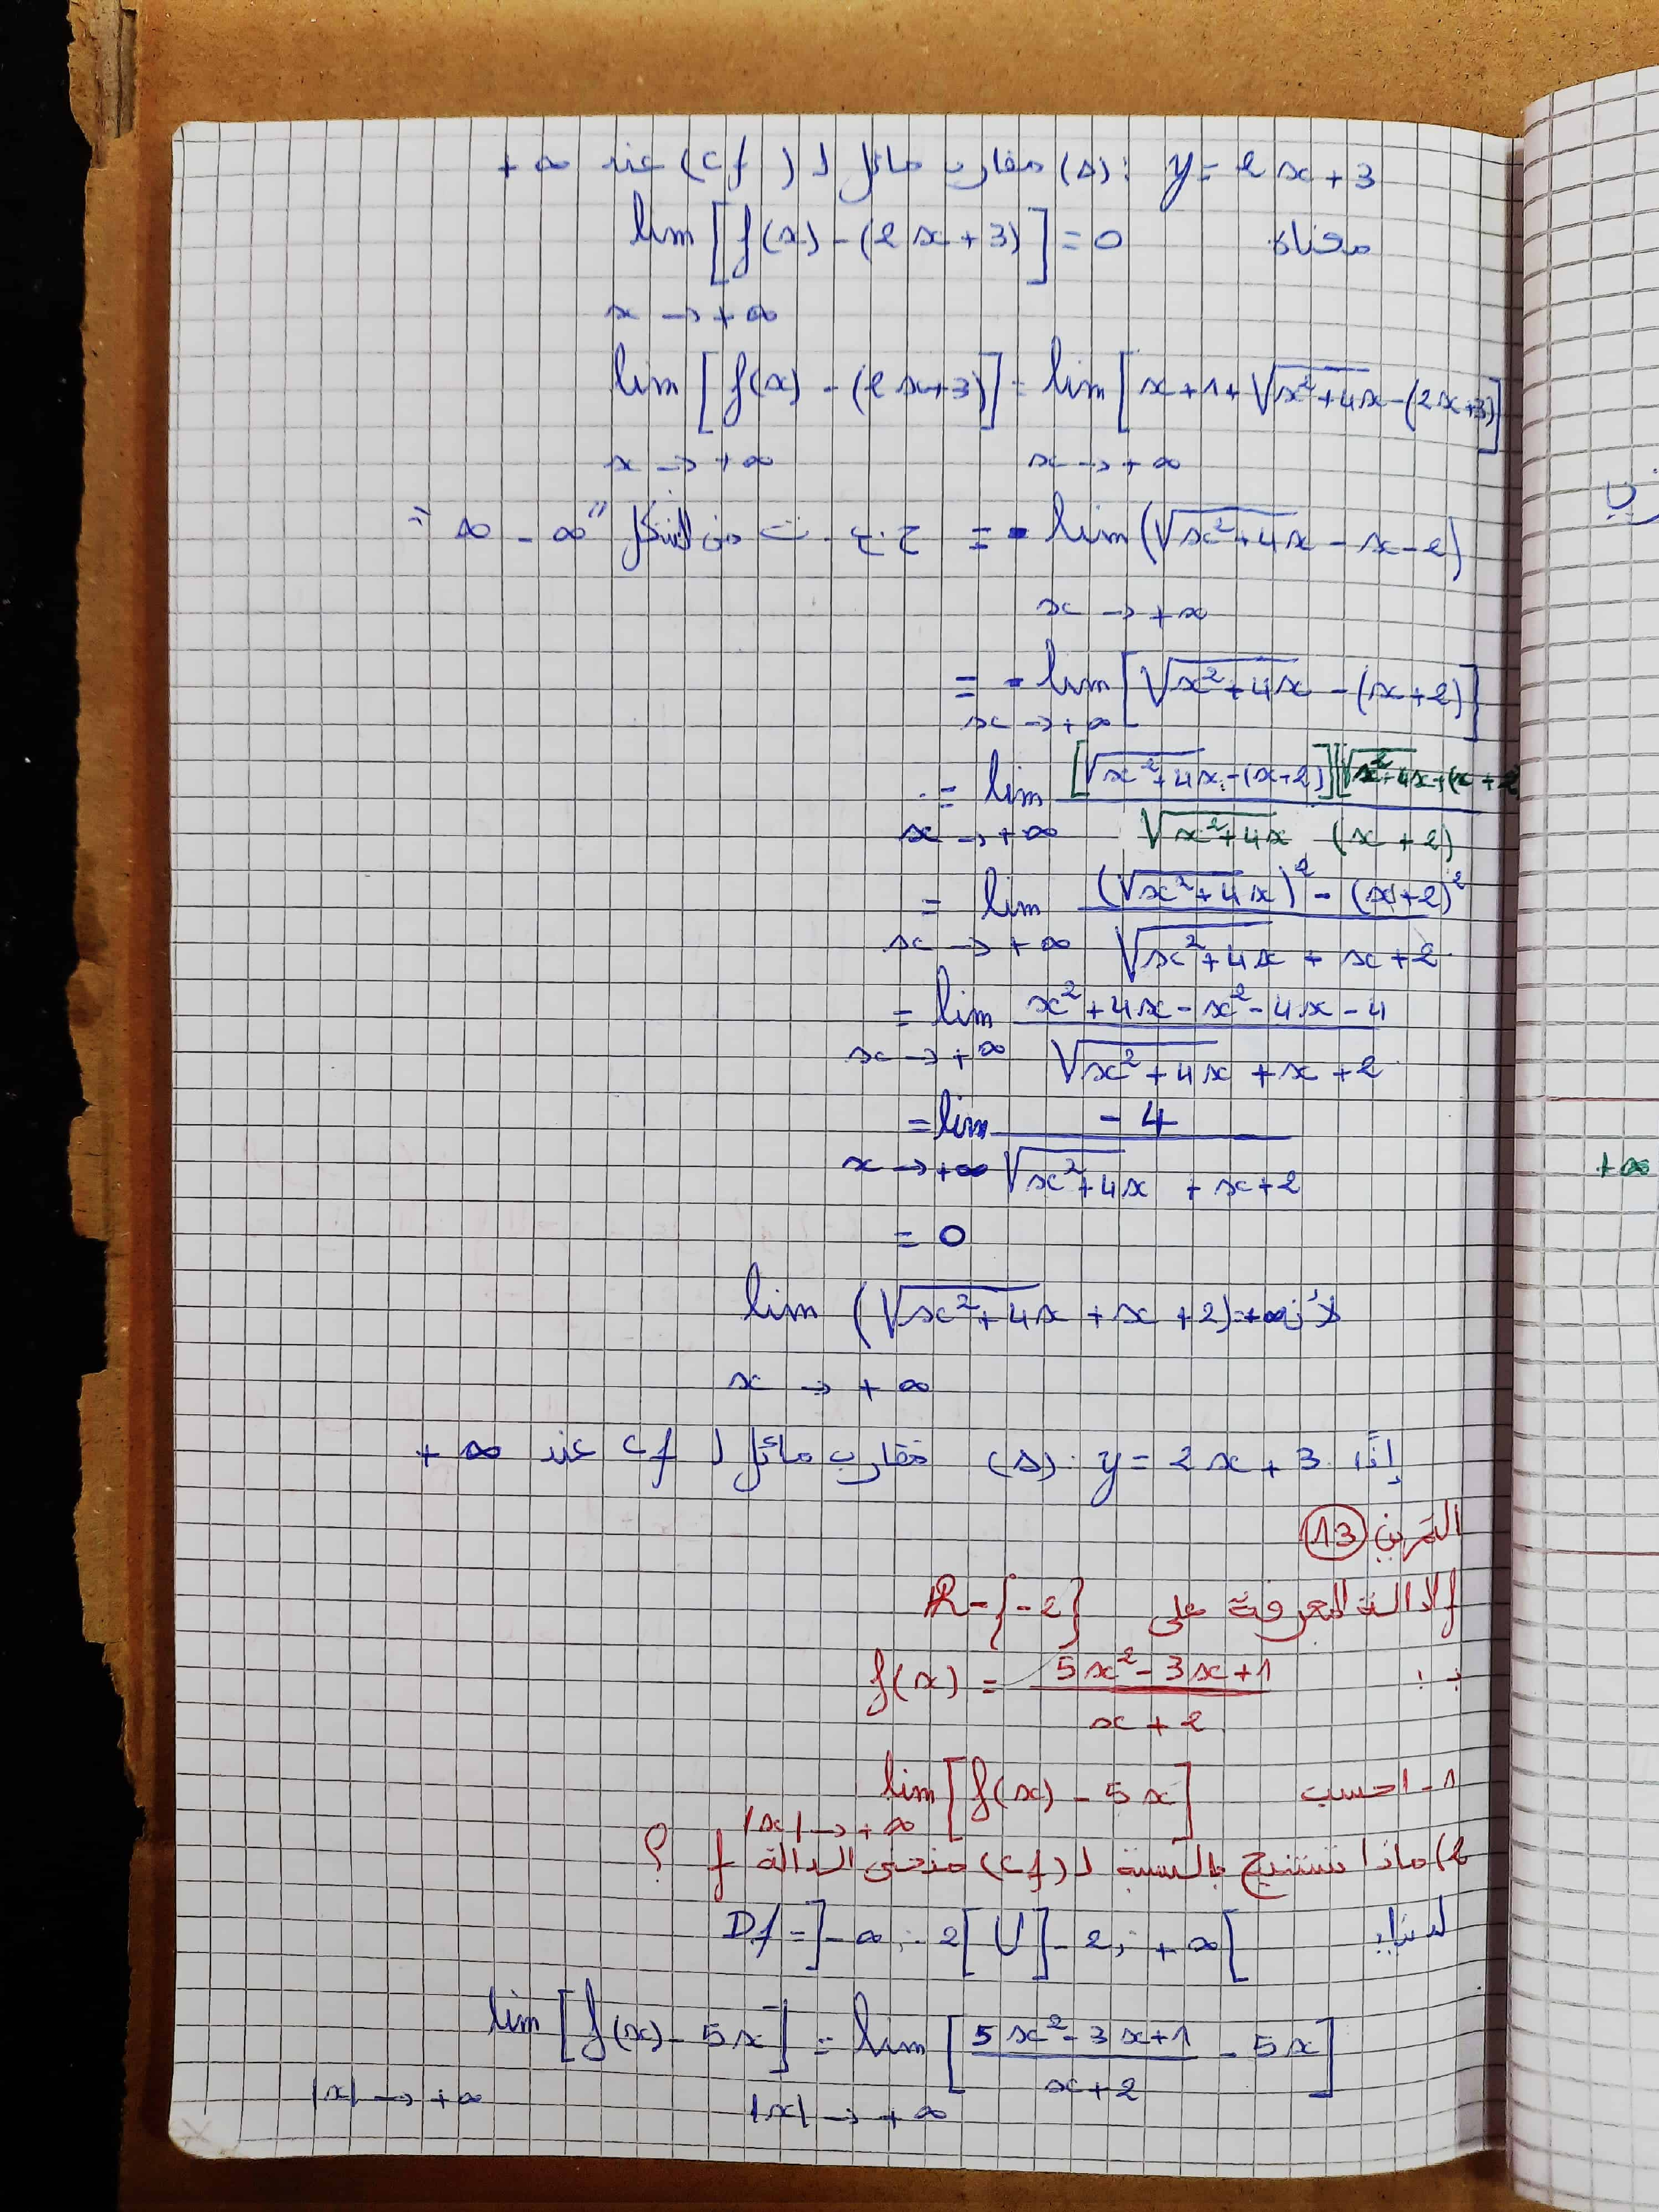 (Δ): y = 2x + 3 مقارب مائل لـ (Cf) عند +∞
معناه lim [f(x) - (2x + 3)] = 0
x → +∞
lim [f(x) - (2x+3)] = lim [x + 1 + √x²+4x - (2x+3)]
x → +∞ x → +∞
= lim (√x²+4x - x - 2) = ح.ع.ت من الشكل "∞ - ∞"
x → +∞
= lim [√x²+4x - (x+2)]
x → +∞
= lim [√x²+4x - (x+2)][√x²+4x + (x+2
x → +∞ √x²+4x (x+2)
= lim (√x²+4x)² - (x+2)²
x → +∞ √x²+4x + x + 2
= lim x² + 4x - x² - 4x - 4
x → +∞ √x²+4x + x + 2
= lim - 4
x → +∞ √x²+4x + x + 2
= 0
لأن lim (√x²+4x + x + 2) = +∞
x → +∞
إذًا (Δ): y = 2x + 3 مقارب مائل لـ Cf عند +∞
التمرين 13
f الدالة المعرفة على R - {-2}
بـ: f(x) = 5x² - 3x + 1
x + 2
1 - احسب lim [f(x) - 5x]
|x| → +∞
2) ماذا تستنتج بالنسبة لـ (Cf) منحنى الدالة f ؟
لدينا Df = ]-∞; -2[ U ]-2; +∞[
lim [f(x) - 5x] = lim [5x² - 3x + 1 - 5x]
x + 2
|x| → +∞ |x| → +∞
+∞